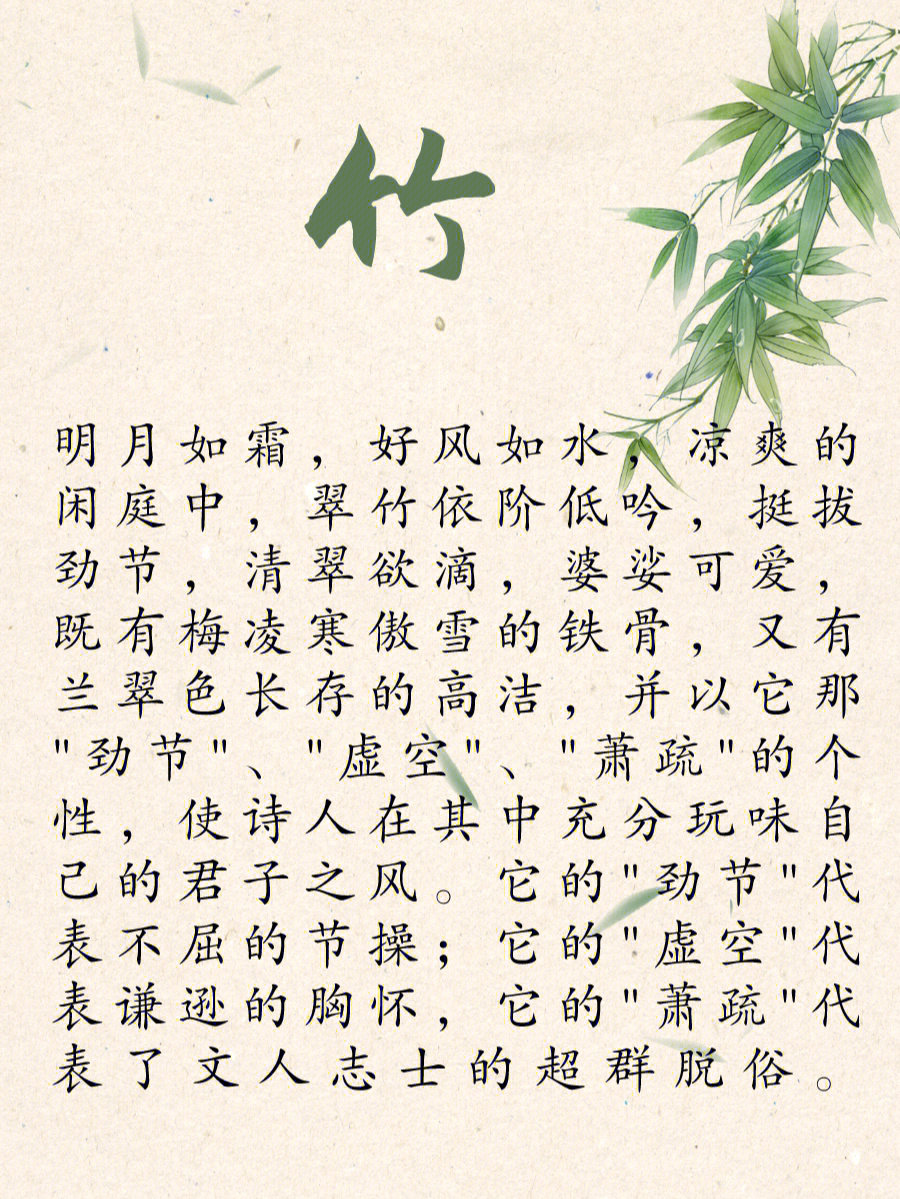 竹
明月如霜，好风如水，凉爽的
闲庭中，翠竹依阶低吟，挺拔
劲节，清翠欲滴，婆娑可爱，
既有梅凌寒傲雪的铁骨，又有
兰翠色长存的高洁，并以它那
"劲节"、"虚空"、"萧疏"的个
性，使诗人在其中充分玩味自
己的君子之风。它的"劲节"代
表不屈的节操；它的"虚空"代
表谦逊的胸怀，它的"萧疏"代
表了文人志士的超群脱俗。